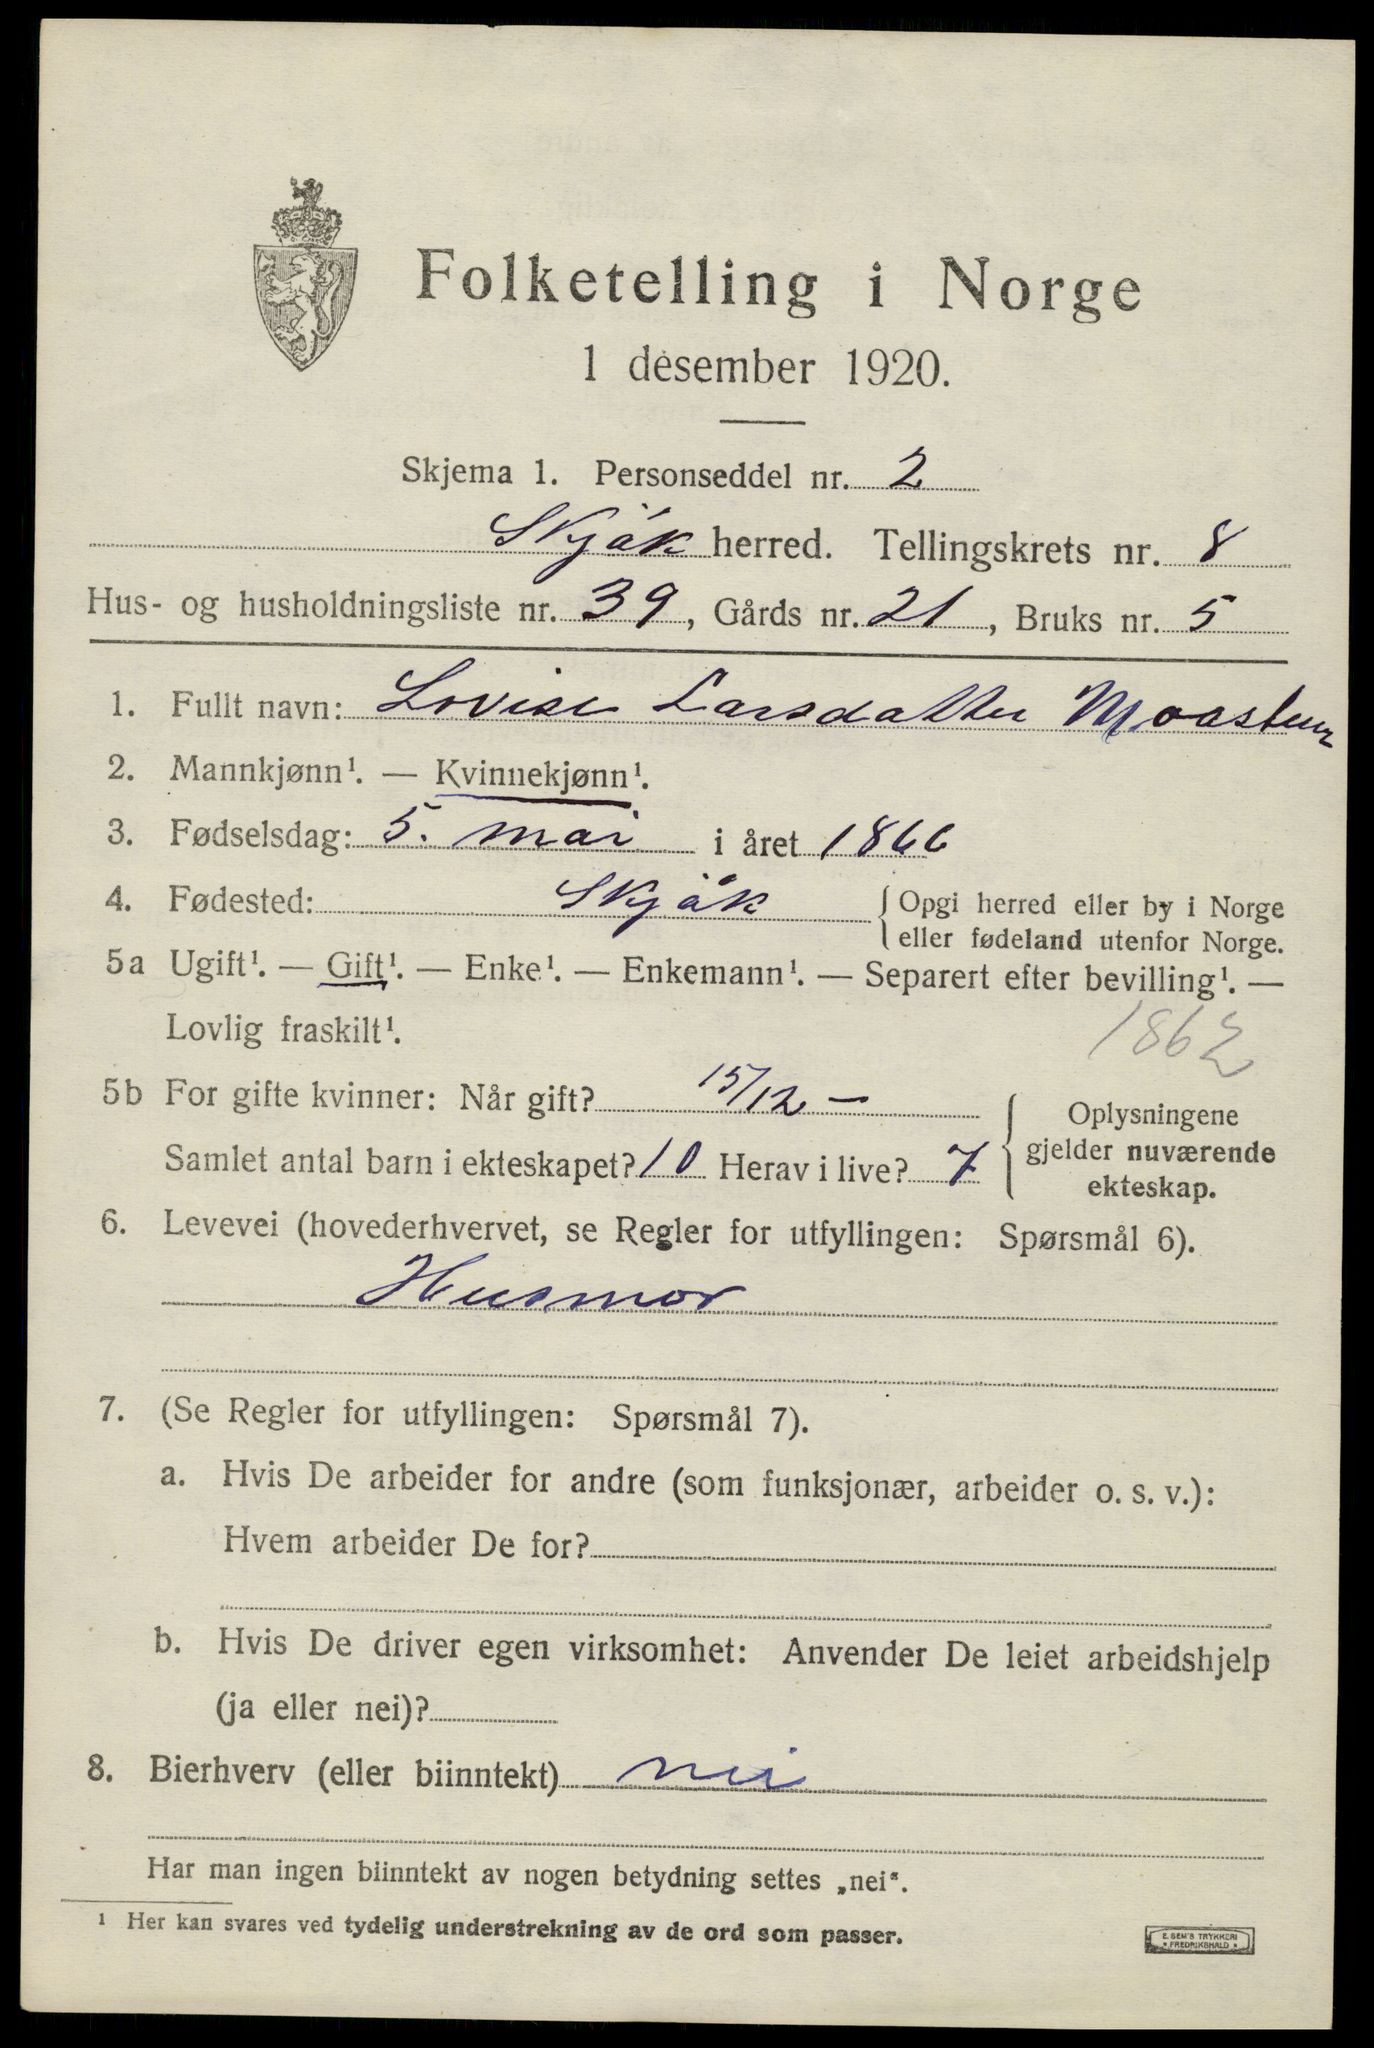 Folketelling i Norge
1 desember 1920.
Skjema 1. Personseddel nr. 2
Skjåk herred. Tellingskrets nr. 8
Hus- og husholdningsliste nr. 39, Gårds nr. 21, Bruks nr. 5
1. Fullt navn: Lovise Larsdatter
2. Mannkjønn¹. — Kvinnekjønn¹.
3. Fødselsdag: 5. mai i året 1866
4. Fødested: Skjåk { Opgi herred eller by i Norge
eller fødeland utenfor Norge.
5a Ugift¹. — Gift¹. — Enke¹. — Enkemann¹. — Separert efter bevilling¹. —
Lovlig fraskilt¹.
1862
5b For gifte kvinner: Når gift? 15/12 —
Samlet antal barn i ekteskapet? 10 Herav i live? 7
{ Oplysningene
gjelder nuværende
ekteskap.
6. Levevei (hovederhvervet, se Regler for utfyllingen: Spørsmål 6).
Husmor
7. (Se Regler for utfyllingen: Spørsmål 7).
a. Hvis De arbeider for andre (som funksjonær, arbeider o. s. v.):
Hvem arbeider De for?
b. Hvis De driver egen virksomhet: Anvender De leiet arbeidshjelp
(ja eller nei)?
8. Bierhverv (eller biinntekt) nei
Har man ingen biinntekt av nogen betydning settes „nei“.
¹ Her kan svares ved tydelig understrekning av de ord som passer.
E. SEM'S TRYKKERI
* FREDRIKSHALD *